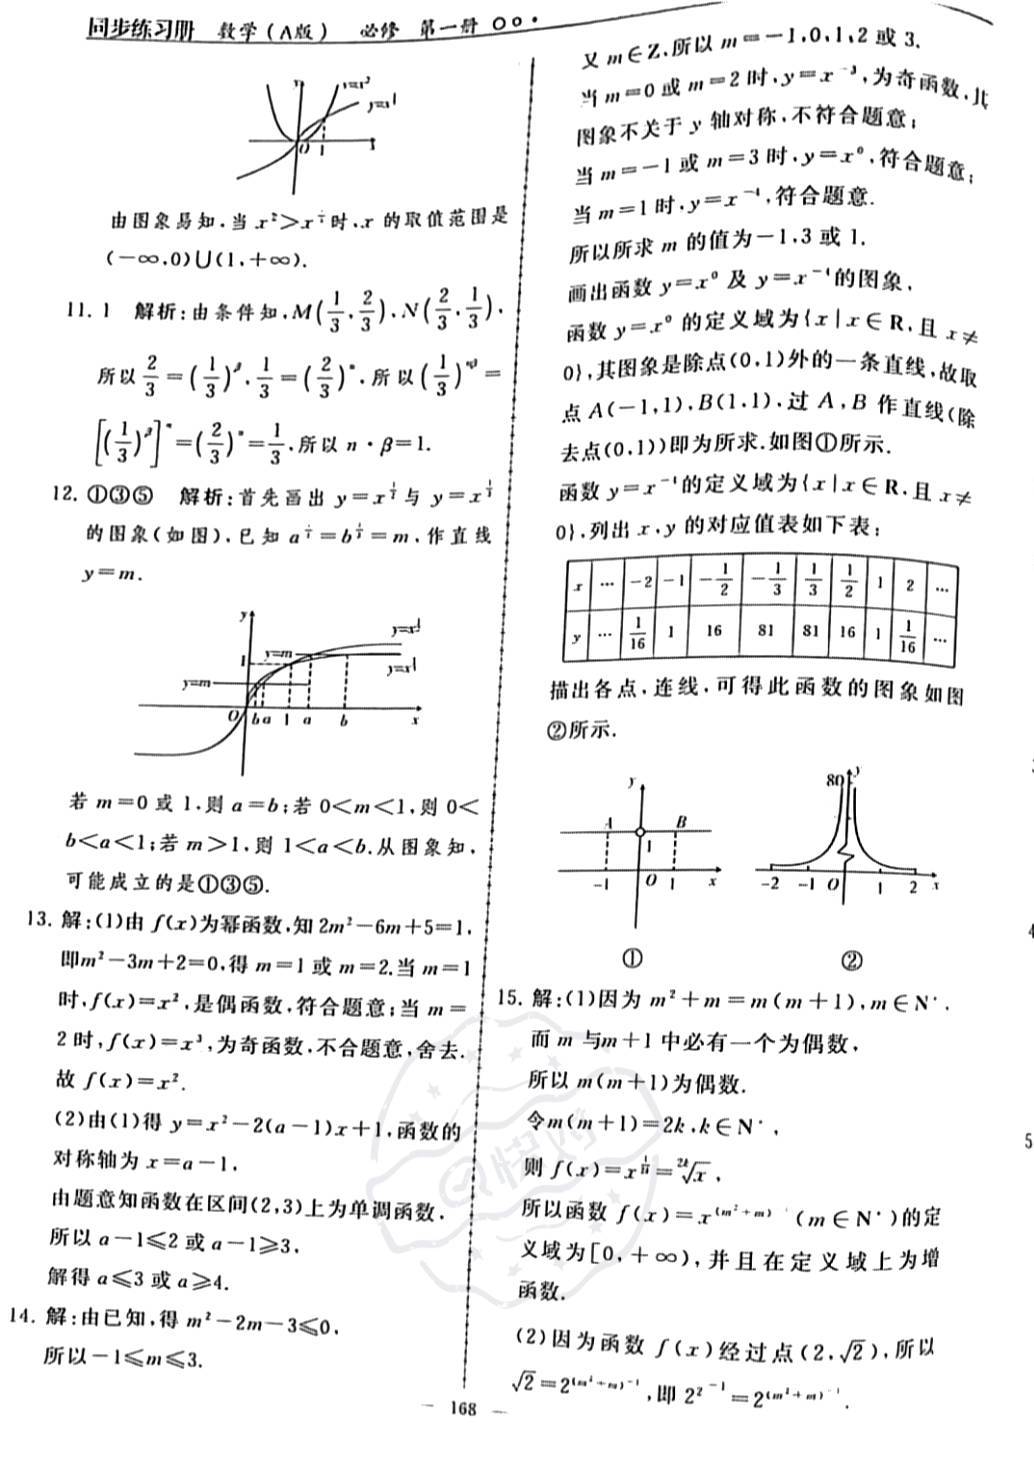 同步练习册 数学(A版) 必修 第一册
由图象易知,当
时,x 的取值范围是
(-∞,0)∪(1,+∞).
11. 1 解析:由条件知,M(1/3,2/3),N(2/3,1/3),
所以 2/3=(1/3)^β,1/3=(2/3)^α,所以
=1/3,所以 n·β=1.
12. ①③⑤ 解析:首先画出
的图象(如图),已知 =m,作直线
y=m.
y
y=m
1
y=m
O b a 1 a b x
若 m=0 或 1,则 a=b;若 0<m<1,则 0<
b<a<1;若 m>1,则 1<a<b.从图象知,
可能成立的是①③⑤.
13. 解:(1)由 f(x)为幂函数,知 2m²-6m+5=1,
即m²-3m+2=0,得 m=1 或 m=2.当 m=1
时,f(x)=x²,是偶函数,符合题意;当 m=
2 时,f(x)=x³,为奇函数,不合题意,舍去.
故 f(x)=x².
(2)由(1)得 y=x²-2(a-1)x+1,函数的
对称轴为 x=a-1,
由题意知函数在区间(2,3)上为单调函数,
所以 a-1≤2 或 a-1≥3,
解得 a≤3 或 a≥4.
14. 解:由已知,得 m²-2m-3≤0,
所以-1≤m≤3.
又 m∈Z,所以 m=-1,0,1,2 或 3.
当 m=0 或 m=2 时,y=x⁻³,为奇函数,其
图象不关于 y 轴对称,不符合题意;
当 m=-1 或 m=3 时,y=x⁰,符合题意;
当 m=1 时,y=x⁻⁴,符合题意.
所以所求 m 的值为-1,3 或 1.
画出函数 y=x⁰ 及 y=x⁻⁴的图象,
函数 y=x⁰ 的定义域为{x|x∈R,且 x≠
0},其图象是除点(0,1)外的一条直线,故取
点 A(-1,1),B(1,1),过 A,B 作直线(除
去点(0,1))即为所求.如图①所示.
函数 y=x⁻⁴的定义域为{x|x∈R,且 x≠
0},列出 x,y 的对应值表如下表:
x … -2 -1 -1/2 -1/3 1/3 1/2 1 2 …
y … 1/16 1 16 81 81 16 1 1/16 …
描出各点,连线,可得此函数的图象如图
②所示.
y A B 1 -1 O 1 x
80 y -2 -1 O 1 2 x
① ②
15. 解:(1)因为 m²+m=m(m+1),m∈N*,
而 m 与m+1 中必有一个为偶数,
所以 m(m+1)为偶数.
令m(m+1)=2k,k∈N*,
则 f(x)=
所以函数 f(x)=x^(m²+m)⁻¹ (m∈N*)的定
义域为[0,+∞),并且在定义域上为增
函数.
(2)因为函数 f(x)经过点(2,√2),所以
√2=2^(m²+m)⁻¹,即 2^2⁻¹=2^(m²+m)⁻¹.
168